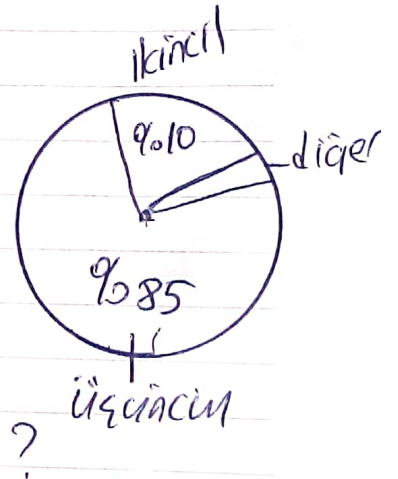 ikincil
%10
diğer
%85
üçüncül
?